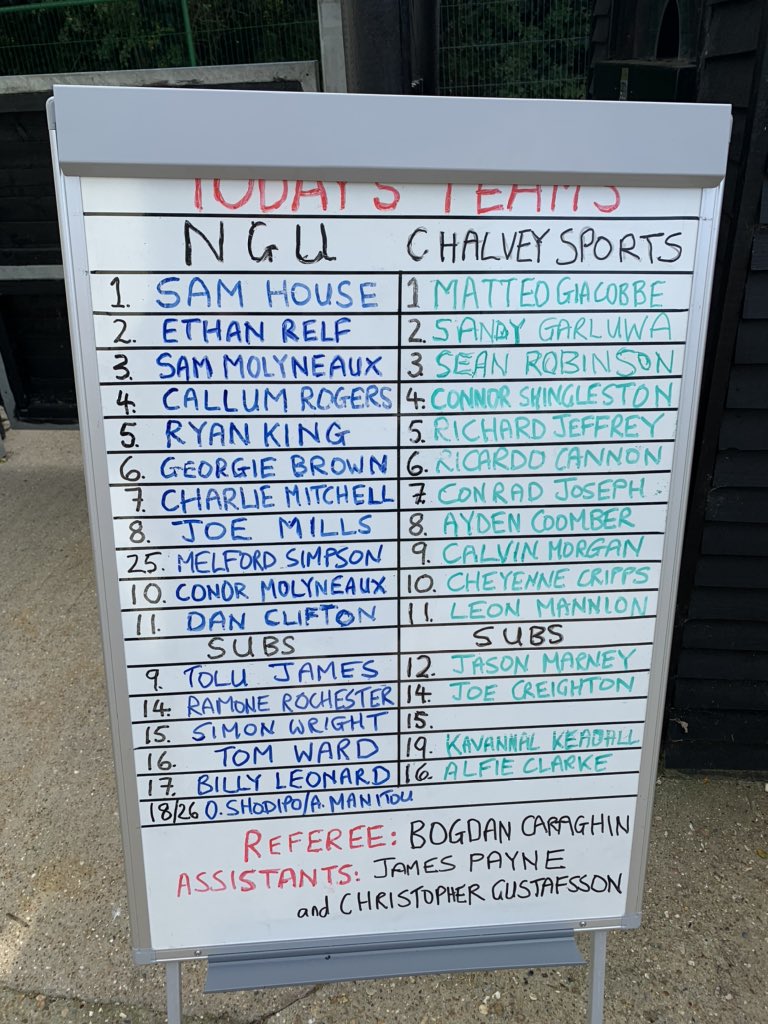 TODAY'S TEAMS
NGU CHALVEY SPORTS
1. SAM HOUSE 1 MATTEO GIACOBBE
2. ETHAN RELF 2. SANDY GARLUWA
3. SAM MOLYNEAUX 3. SEAN ROBINSON
4. CALLUM ROGERS 4. CONNOR SHINGLESTON
5. RYAN KING 5. RICHARD JEFFREY
6. GEORGIE BROWN 6. RICARDO CANNON
7. CHARLIE MITCHELL 7. CONRAD JOSEPH
8. JOE MILLS 8. AYDEN COOMBER
25. MELFORD SIMPSON 9. CALVIN MORGAN
10. CONOR MOLYNEAUX 10. CHEYENNE CRIPPS
11. DAN CLIFTON 11. LEON MANNION
SUBS SUBS
9. TOLU JAMES 12. JASON MARNEY
14. RAMONE ROCHESTER 14. JOE CREIGHTON
15. SIMON WRIGHT 15.
16. TOM WARD 19. KAVANNAL KEADALL
17. BILLY LEONARD 16. ALFIE CLARKE
18/26 O. SHODIPO/A. MANITOU
REFEREE: BOGDAN CARAGHIN
ASSISTANTS: JAMES PAYNE
and CHRISTOPHER GUSTAFSSON